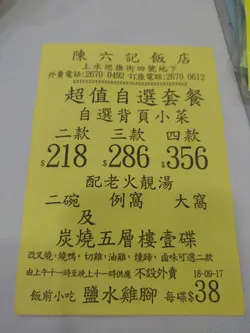 陳六記飯店
上水巡撫街四號地下
外賣電話:2670 0492 訂座電話:2670 0612
超值自選套餐
自選背頁小菜
二款 三款 四款
$218 $286 $356
配老火靚湯
二碗 例窩 大窩
及
炭燒五層樓壹碟
改叉燒,燒鴨,切雞,油雞,燒蹄,鹵味可選二款
由上午十一時至晚上十一時供應 不設外賣 18-09-17
飯前小吃 鹽水雞腳 每碟$38